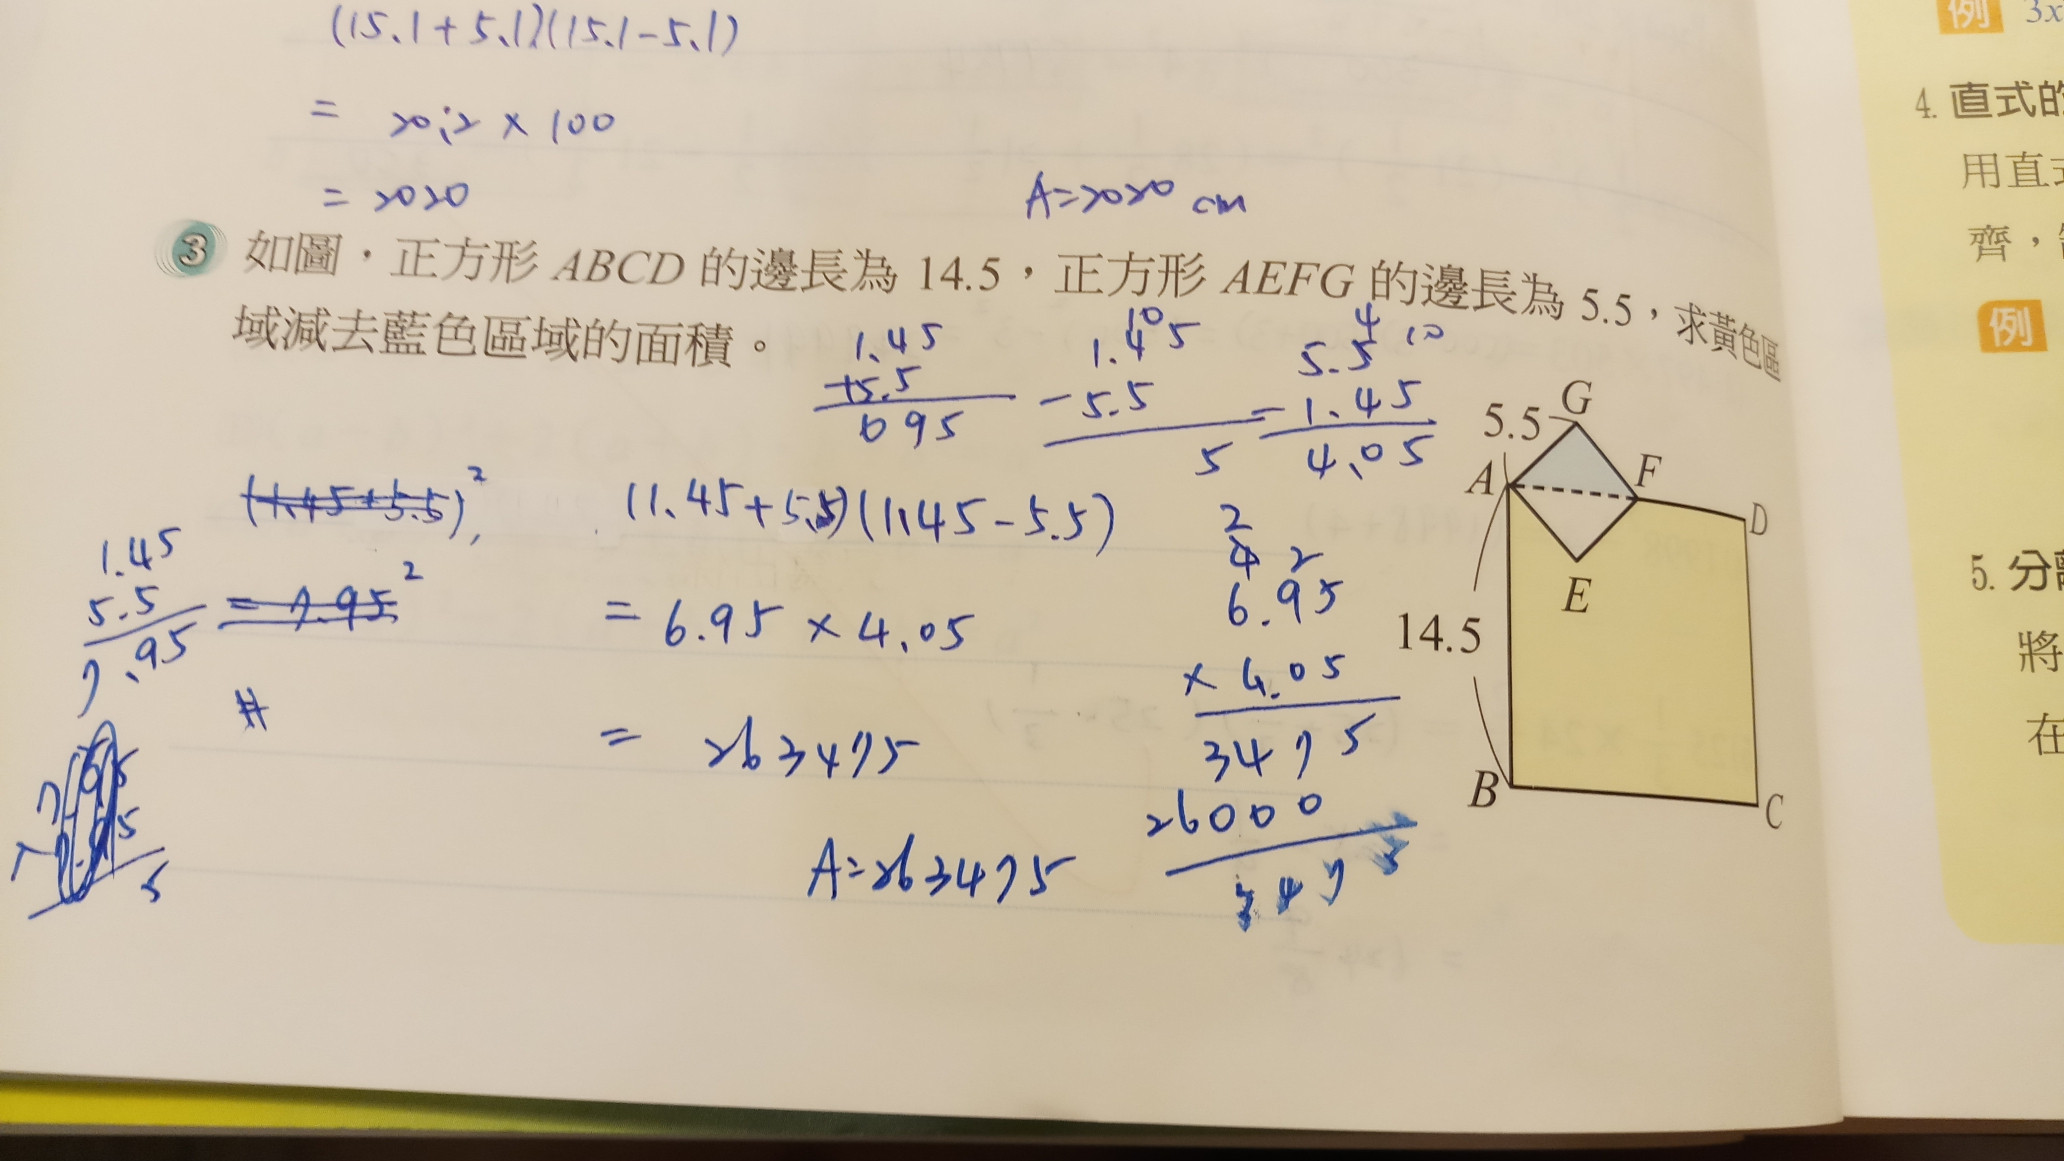 (15.1+5.1)(15.1-5.1)
= 20.2 × 100
= 2020
A=2020 cm
3 如圖,正方形 ABCD 的邊長為 14.5,正方形 AEFG 的邊長為 5.5,求黃色區
域減去藍色區域的面積。
1.45
+5.5
695
10
1.45
-5.5
5
4 10
5.5
-1.45
4.05
(1.45+5.5)²
= 7.95²
1.45
5.5
7.95
(1.45+5.5)(1.45-5.5)
= 6.95 × 4.05
= 263475
A=263475
2
4 2
6.95
× 4.05
3475
26000
3475
5.5
G
A
F
D
E
14.5
B
C
例 3x
4. 直式的
用直式
齊,
例
5. 分
將
在